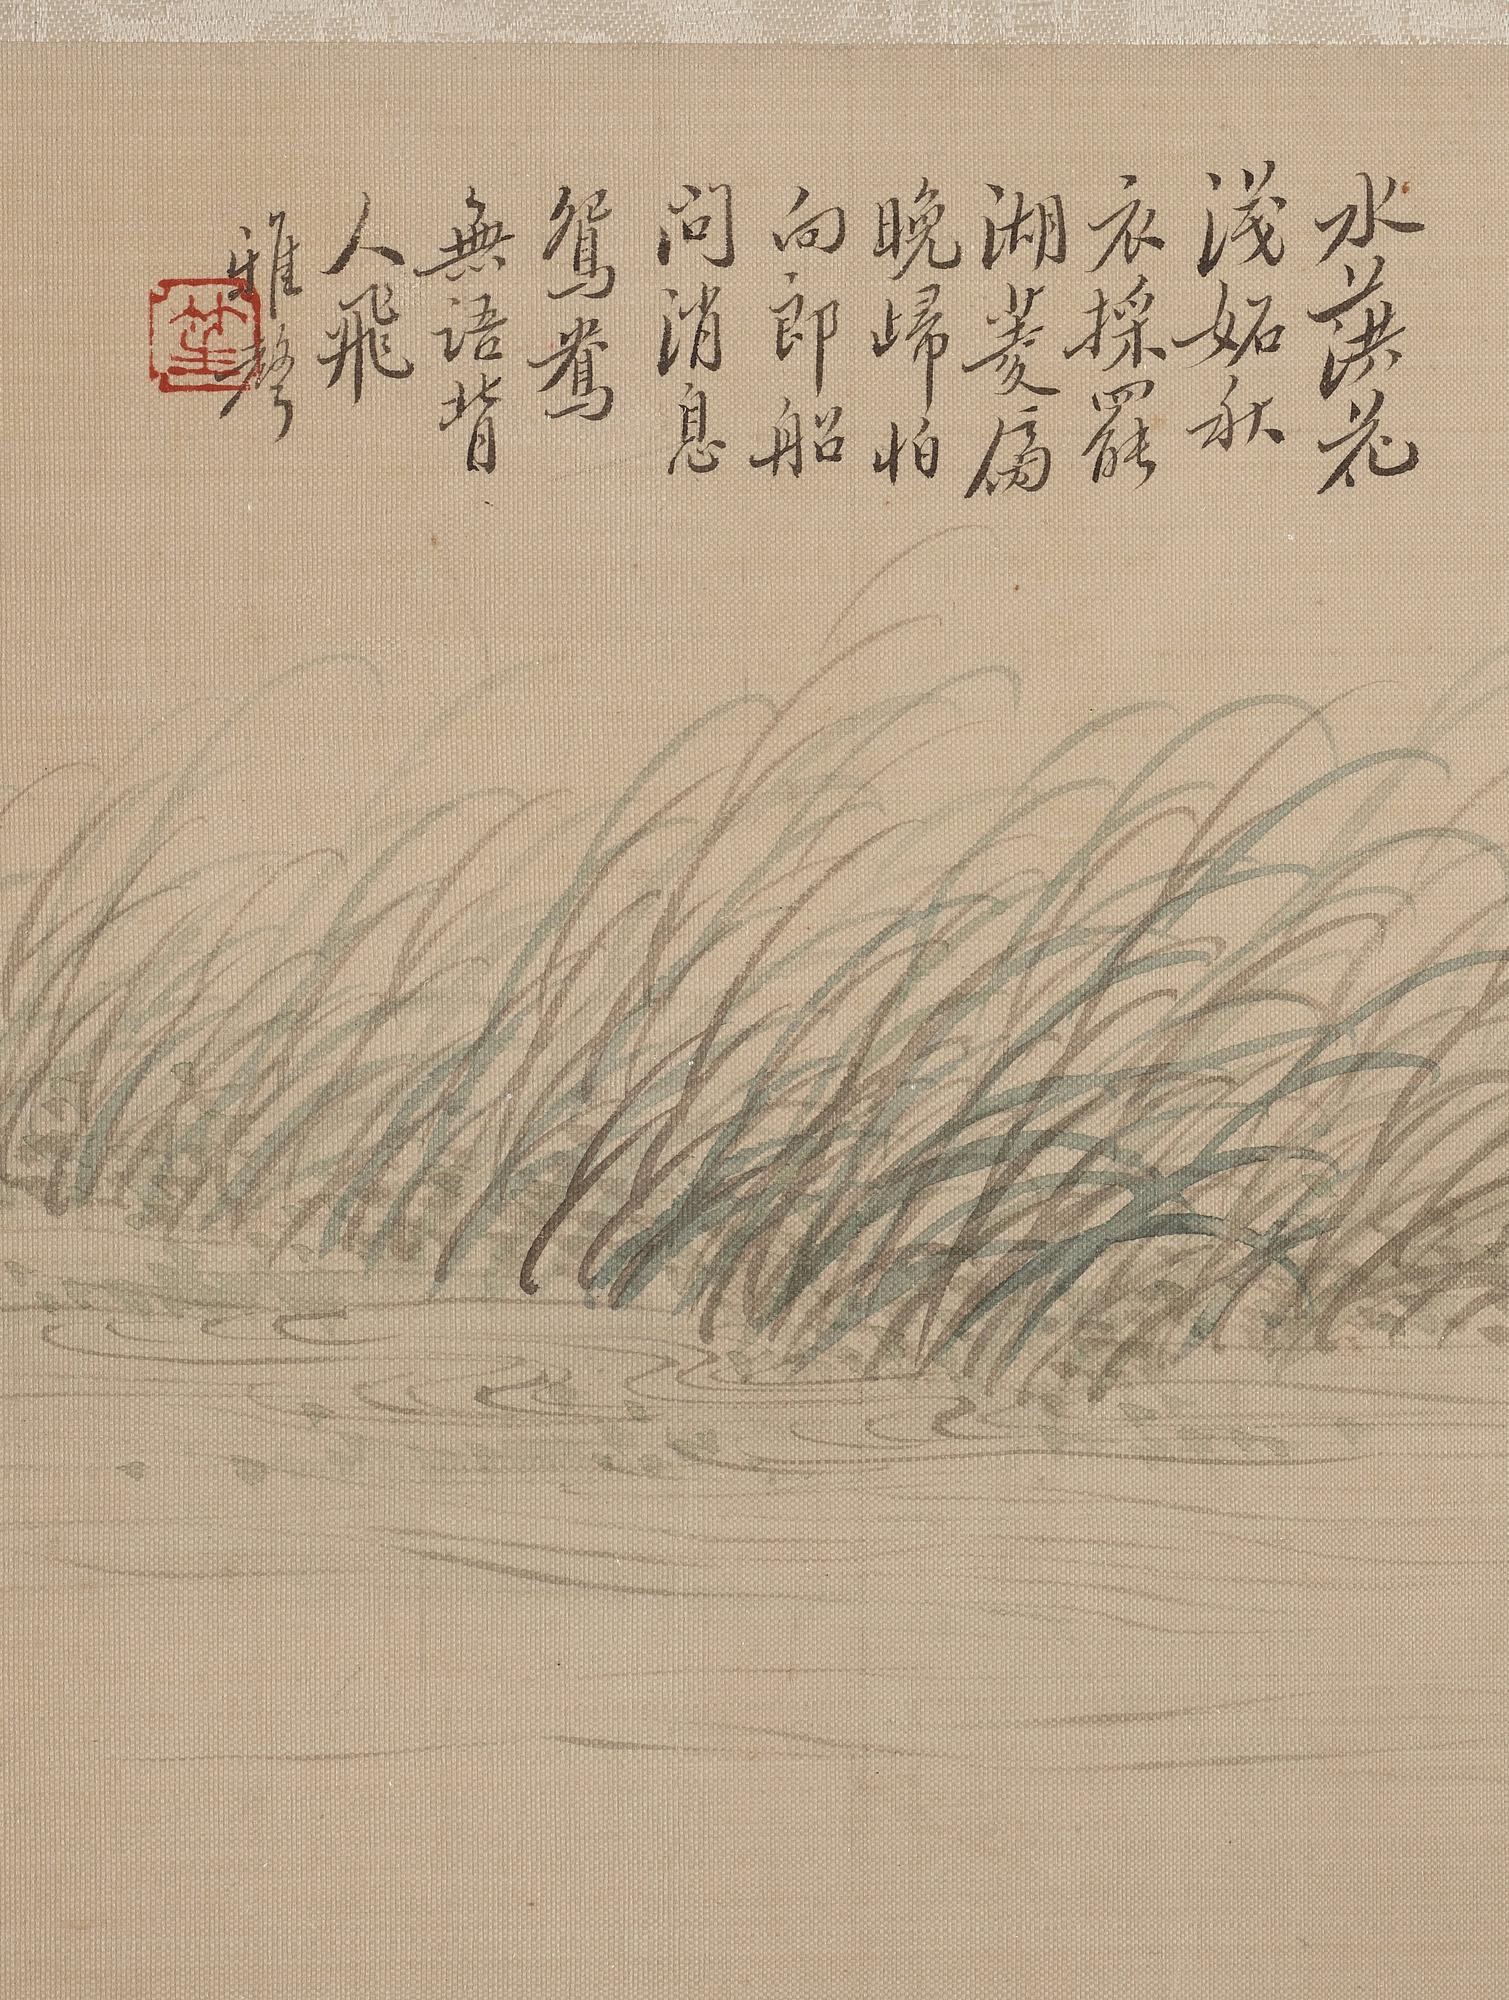 水葓花
淺妬秋
衣採罷
湖菱傍
晚歸怕
向郎船
問消息
鴛鴦
無語背
人飛
雅聲
笙